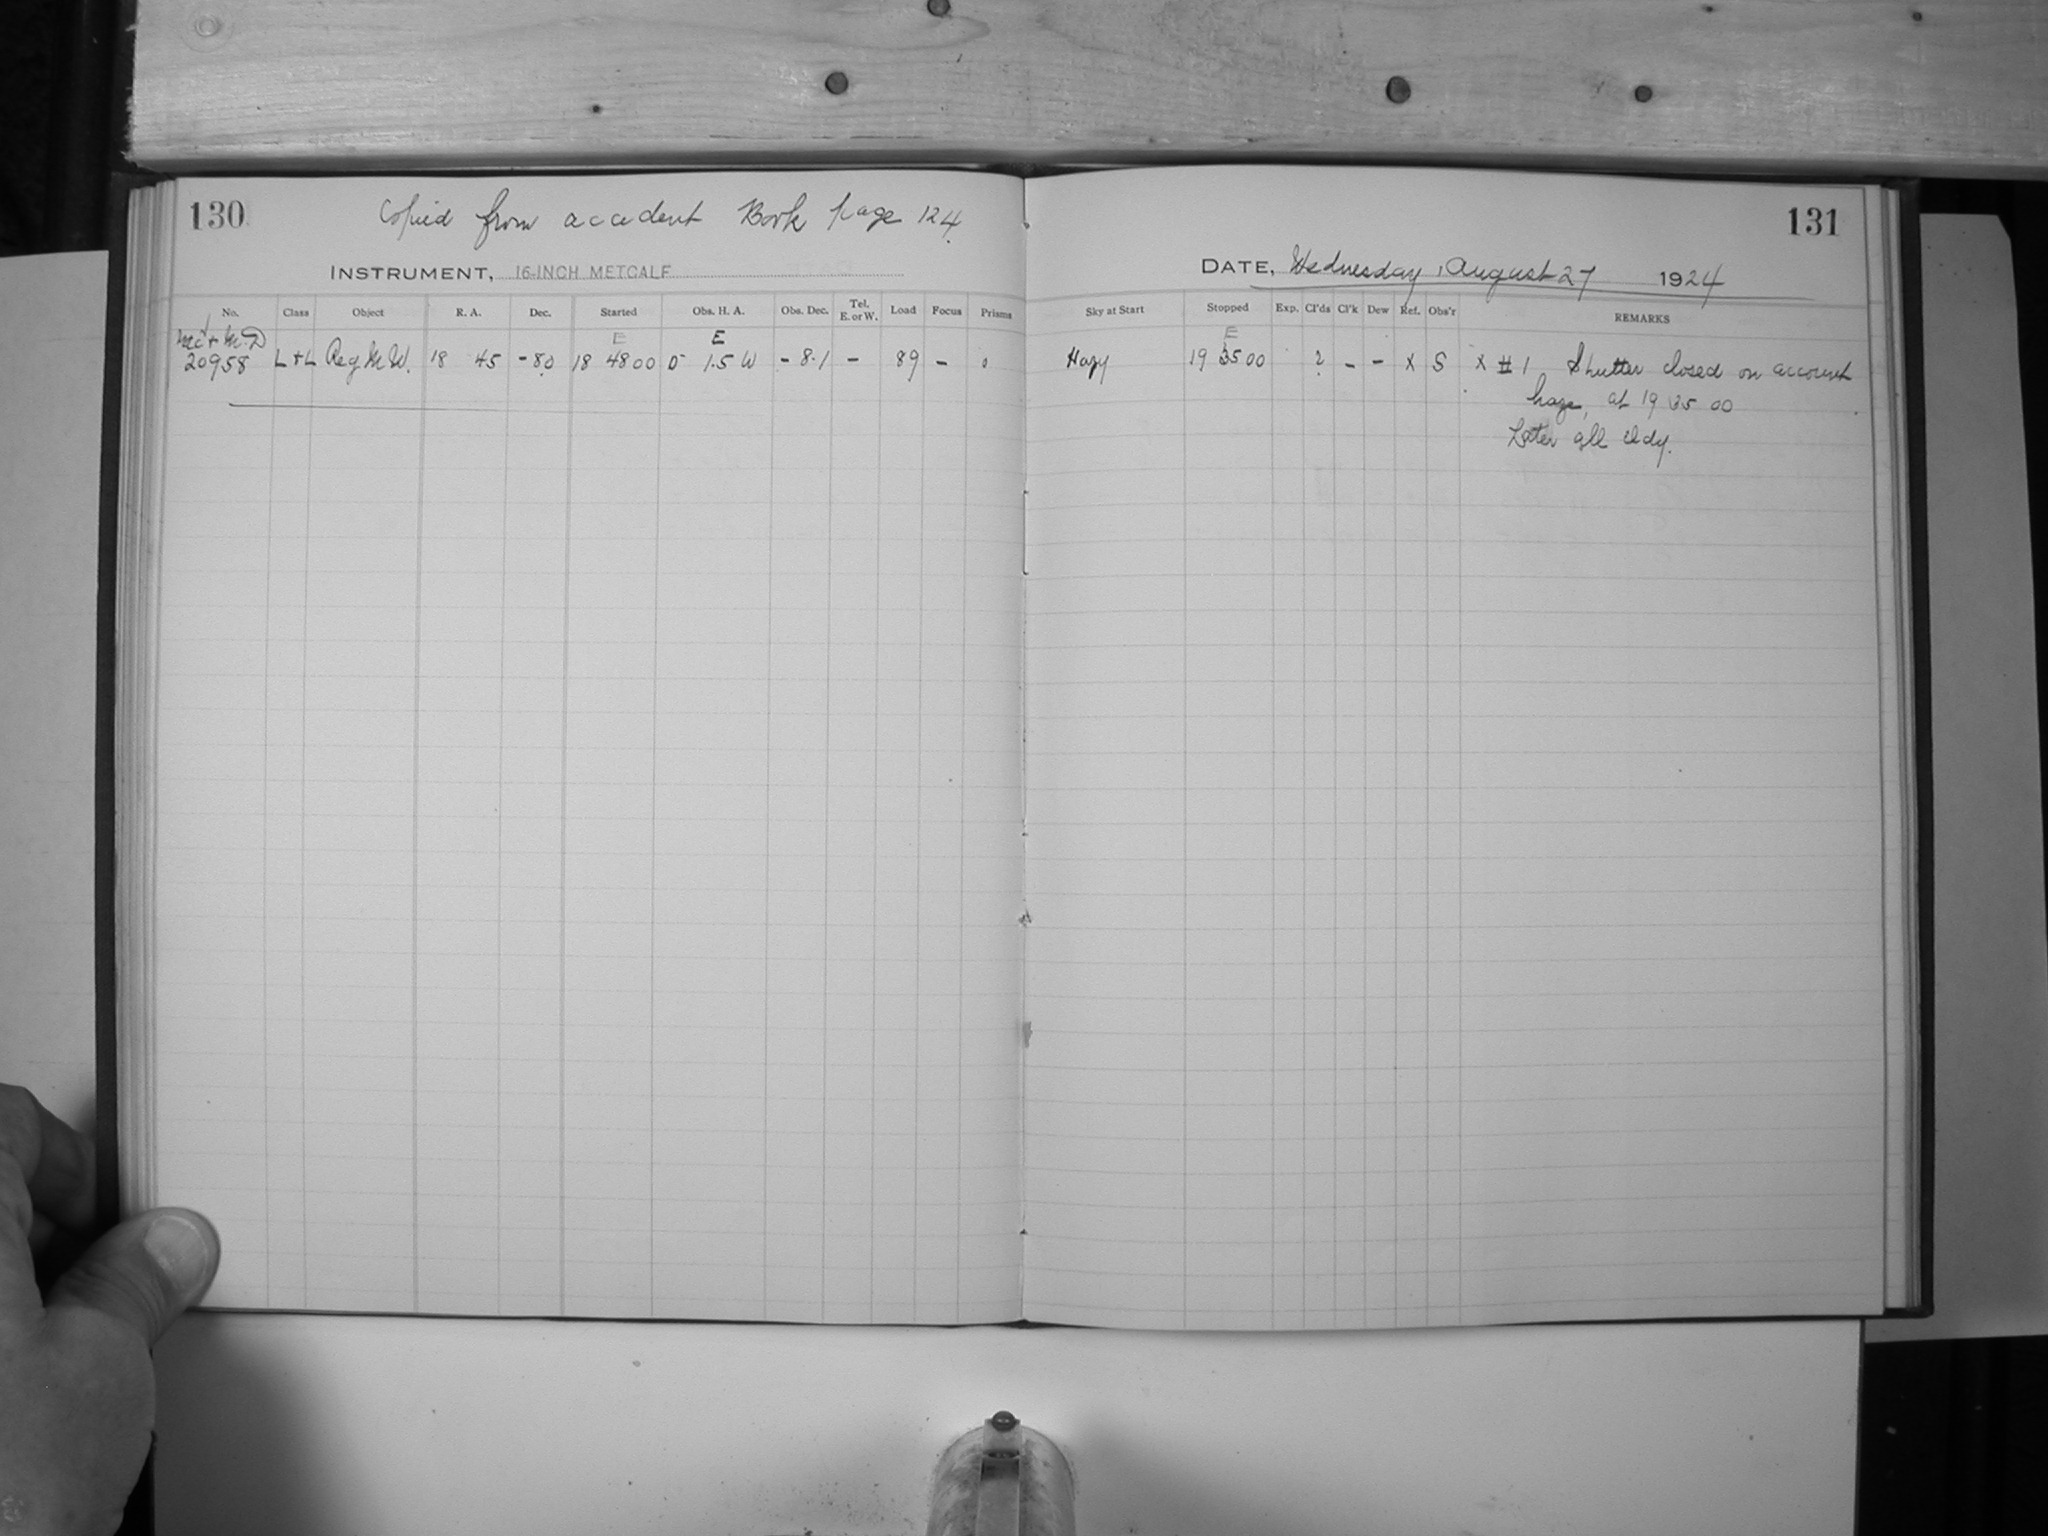 130
Copied from accident Book page 124.
INSTRUMENT, 16-INCH METCALF
No. Class Object R. A. Dec. Started Obs. H. A. Obs. Dec. Tel. E. or W. Load Focus Prisms
Mc + M.D E E
20958 L+L Reg M.W. 18 45 -8.0 18 48 00 0 1.5 W - 8.1 - 89 - 0
131
DATE, Wednesday, August 27 1924
Sky at Start Stopped Exp. Cl'ds Cl'k Dew Ref. Obs'r REMARKS
E
Hazy 19 35 00 2 - - X S X #1 Shutter closed on account
haze, at 19 35 00
Later all cldy.